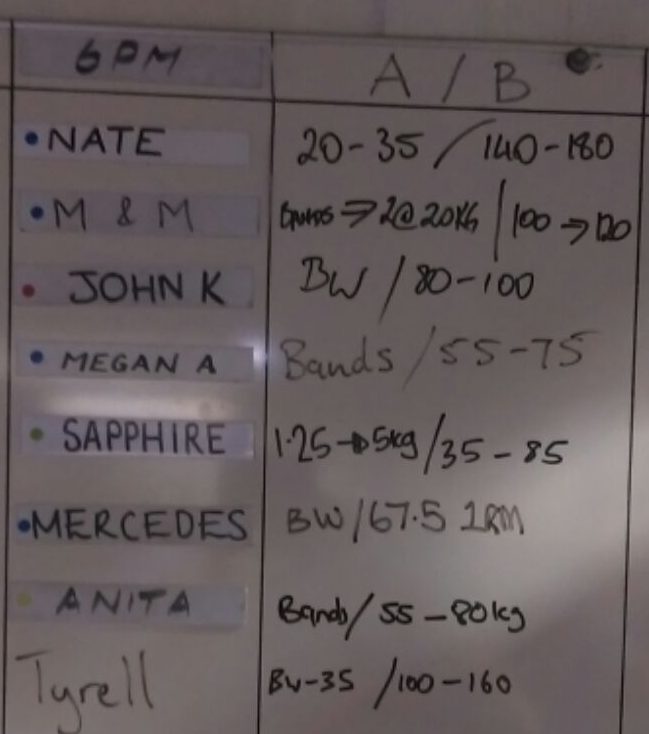 6PM A / B
NATE 20-35 / 140-180
M & M Bands → 2@20KG / 100 → 120
JOHN K BW / 80-100
MEGAN A Bands / 55-75
SAPPHIRE 1.25 → 5kg / 35 - 85
MERCEDES BW / 67.5 1RM
ANITA Bands / 55 - 80kg
Tyrell BW-35 / 100-160